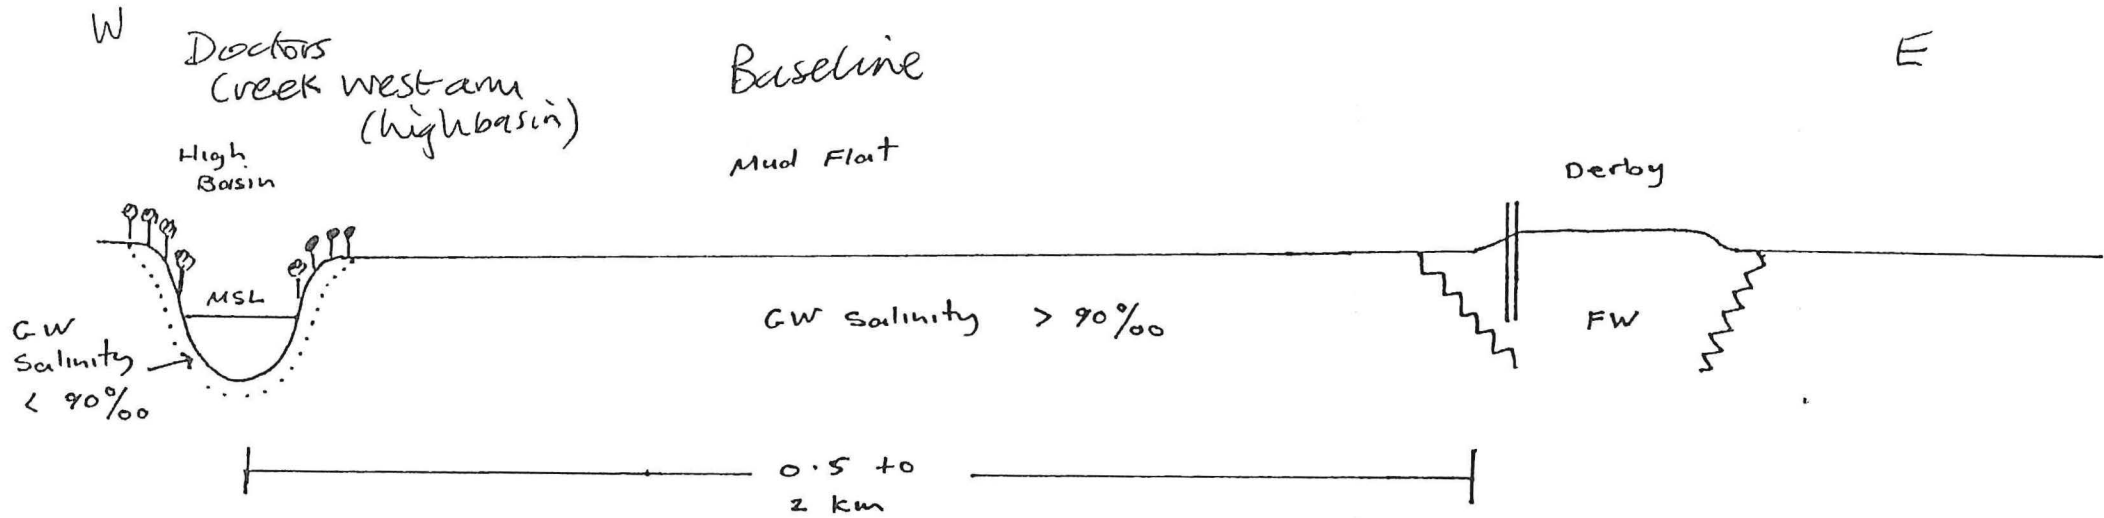 W
E
Doctors
Creek west arm
(high basin)
Baseline
High
Basin
Mud Flat
Derby
MSL
GW
Salinity
< 90‰
GW Salinity > 90‰
FW
0.5 to
2 km